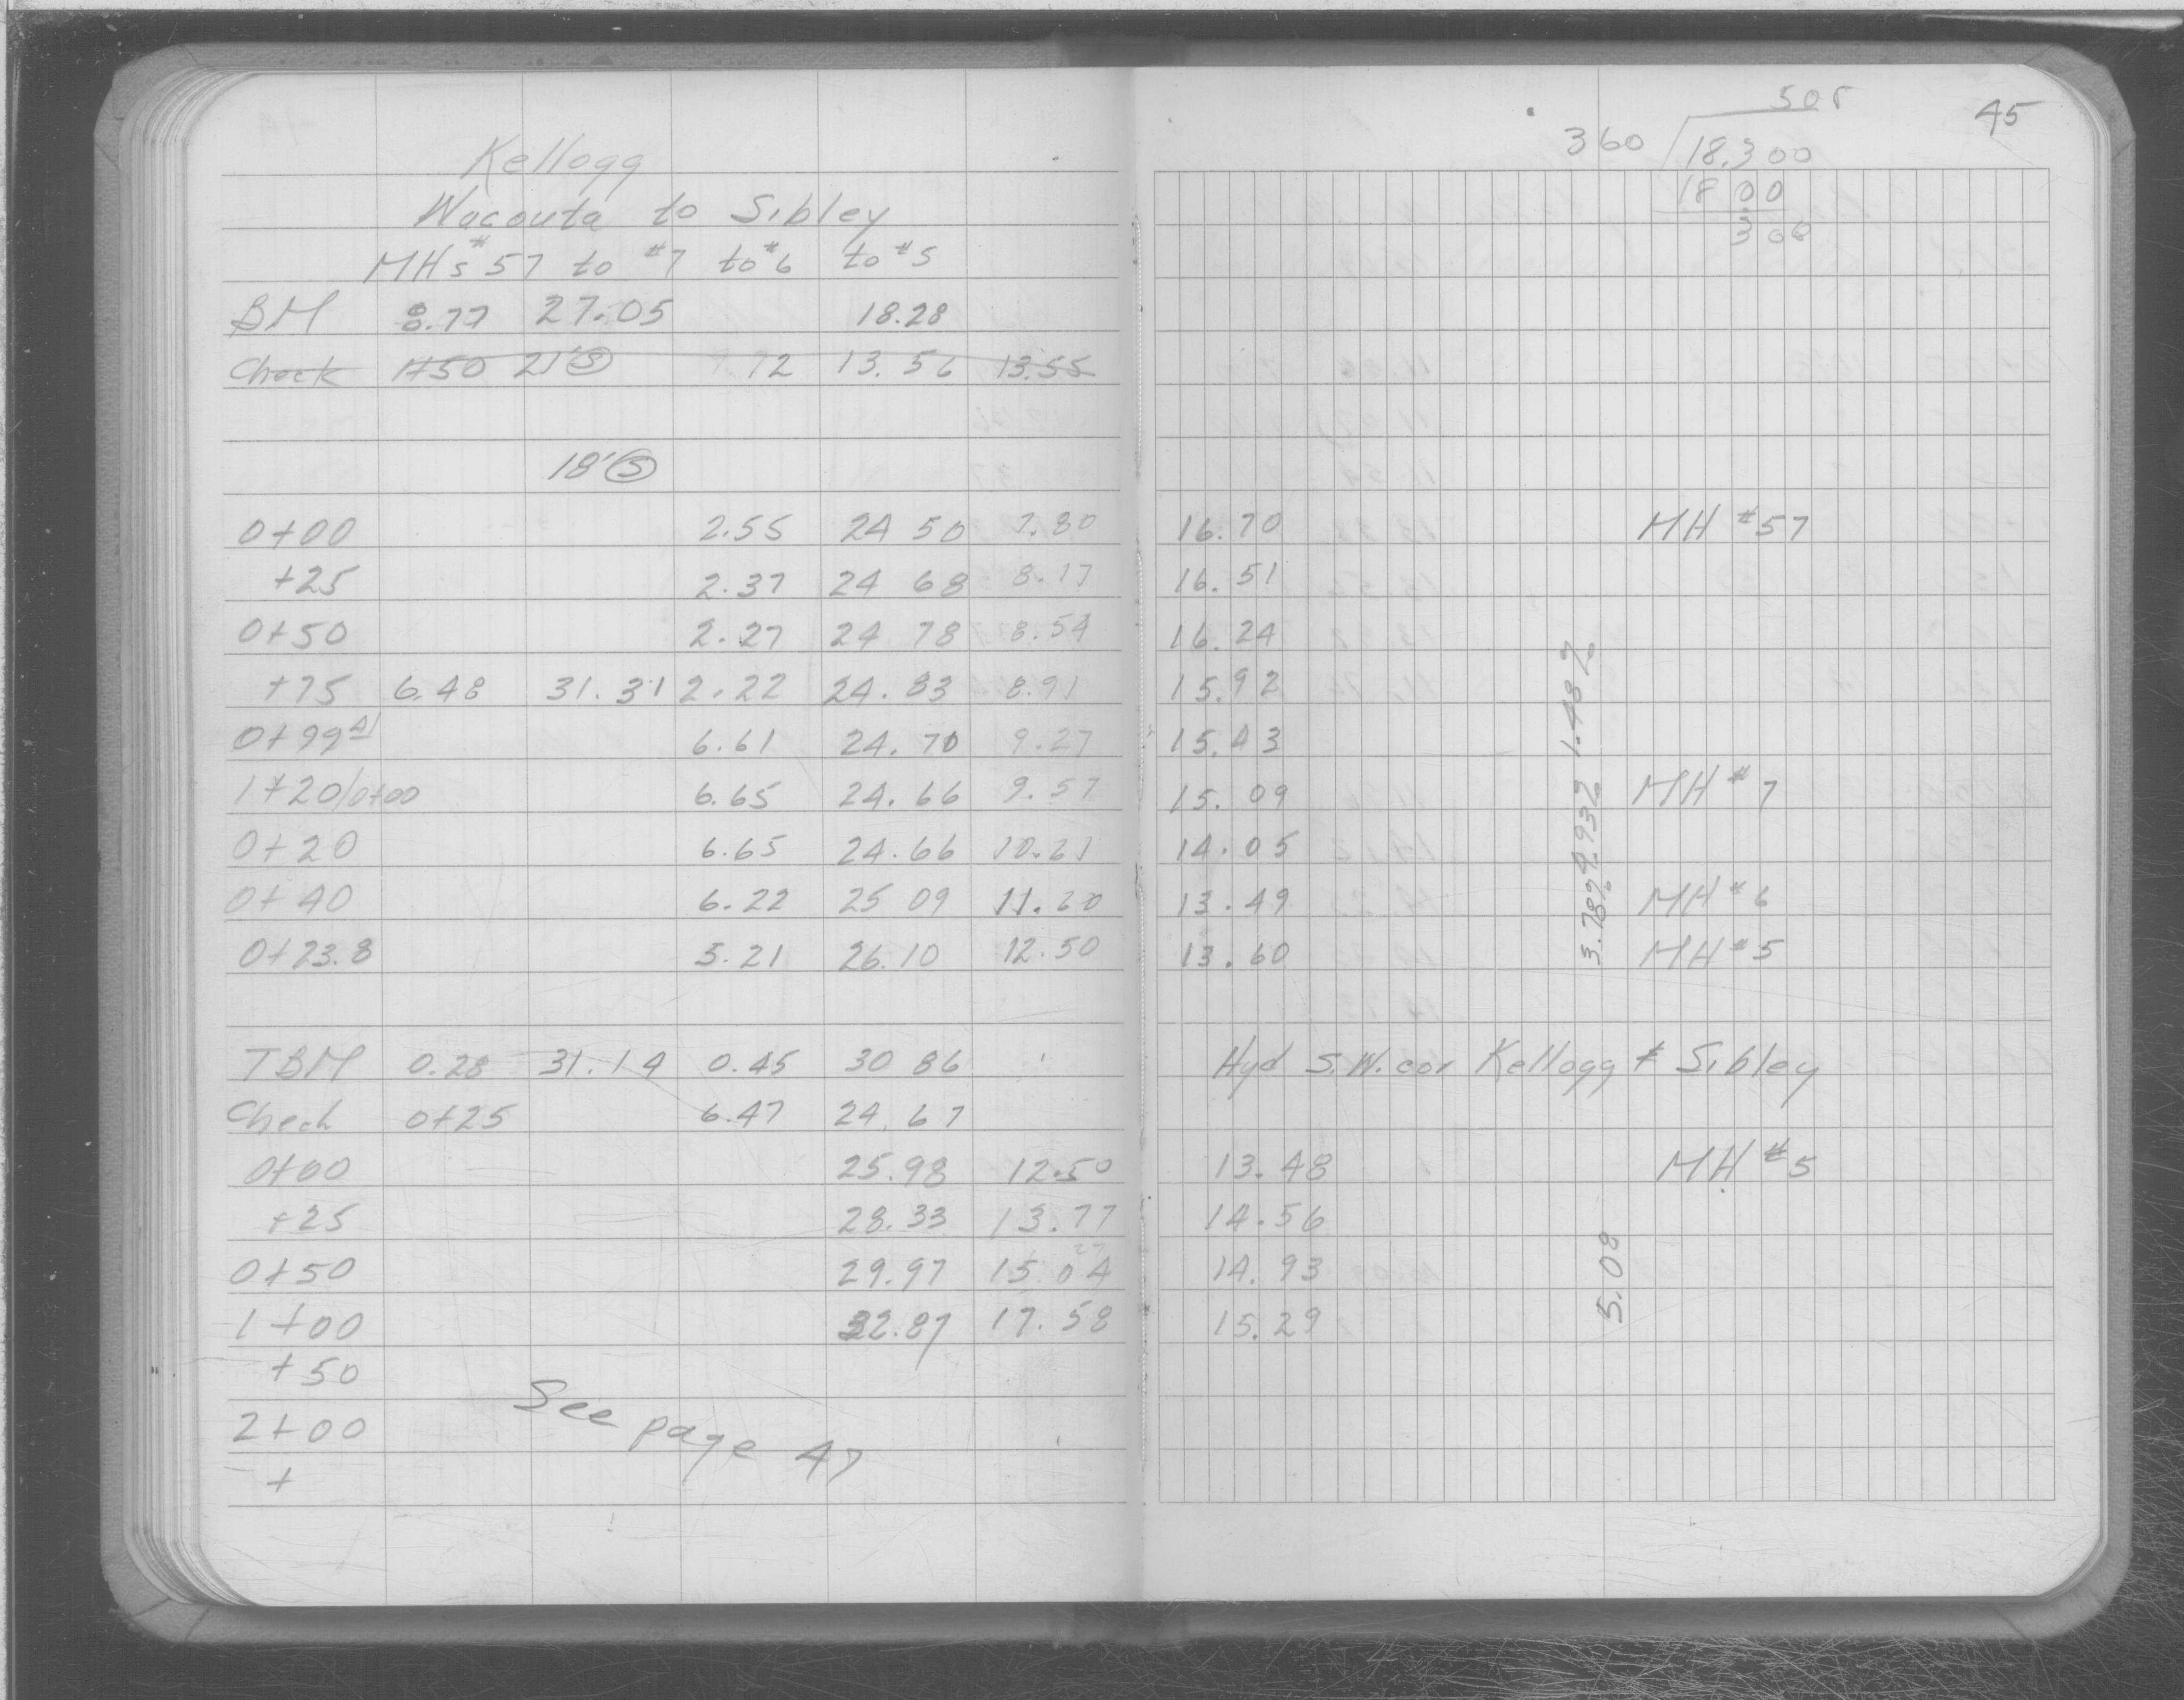 Kellogg
Wacouta to Sibley
MHs #57 to #7 to #6 to #5
BM 8.77 27.05 18.28
Check 1+50 21'Ⓢ 12 13.56 13.55
18'Ⓢ
0+00 2.55 24 50 7.80
+25 2.37 24 68 8.17
0+50 2.27 24 78 8.54
+75 6.48 31.31 2.22 24.83 8.91
0+99 6.61 24.70 9.27
1+20/0+00 6.65 24.66 9.57
0+20 6.65 24.66 10.61
0+40 6.22 25 09 11.60
0+23.8 5.21 26.10 12.50
TBM 0.28 31.14 0.45 30 86
Check 0+25 6.47 24.67
0+00 25.98 12.50
+25 28.33 13.77
0+50 29.97 15.04
1+00 32.87 17.58
+50
2+00
+
See page 47
45
505
360 18.300
18 00
300
16.70 MH #57
16.51
16.24
15.92
15.43
1.48%
15.09 MH #7
14.05
13.49 MH #6
13.60 MH #5
3.78%
Hyd S.W. cor Kellogg & Sibley
13.48 MH #5
14.56
14.93
15.29
5.08